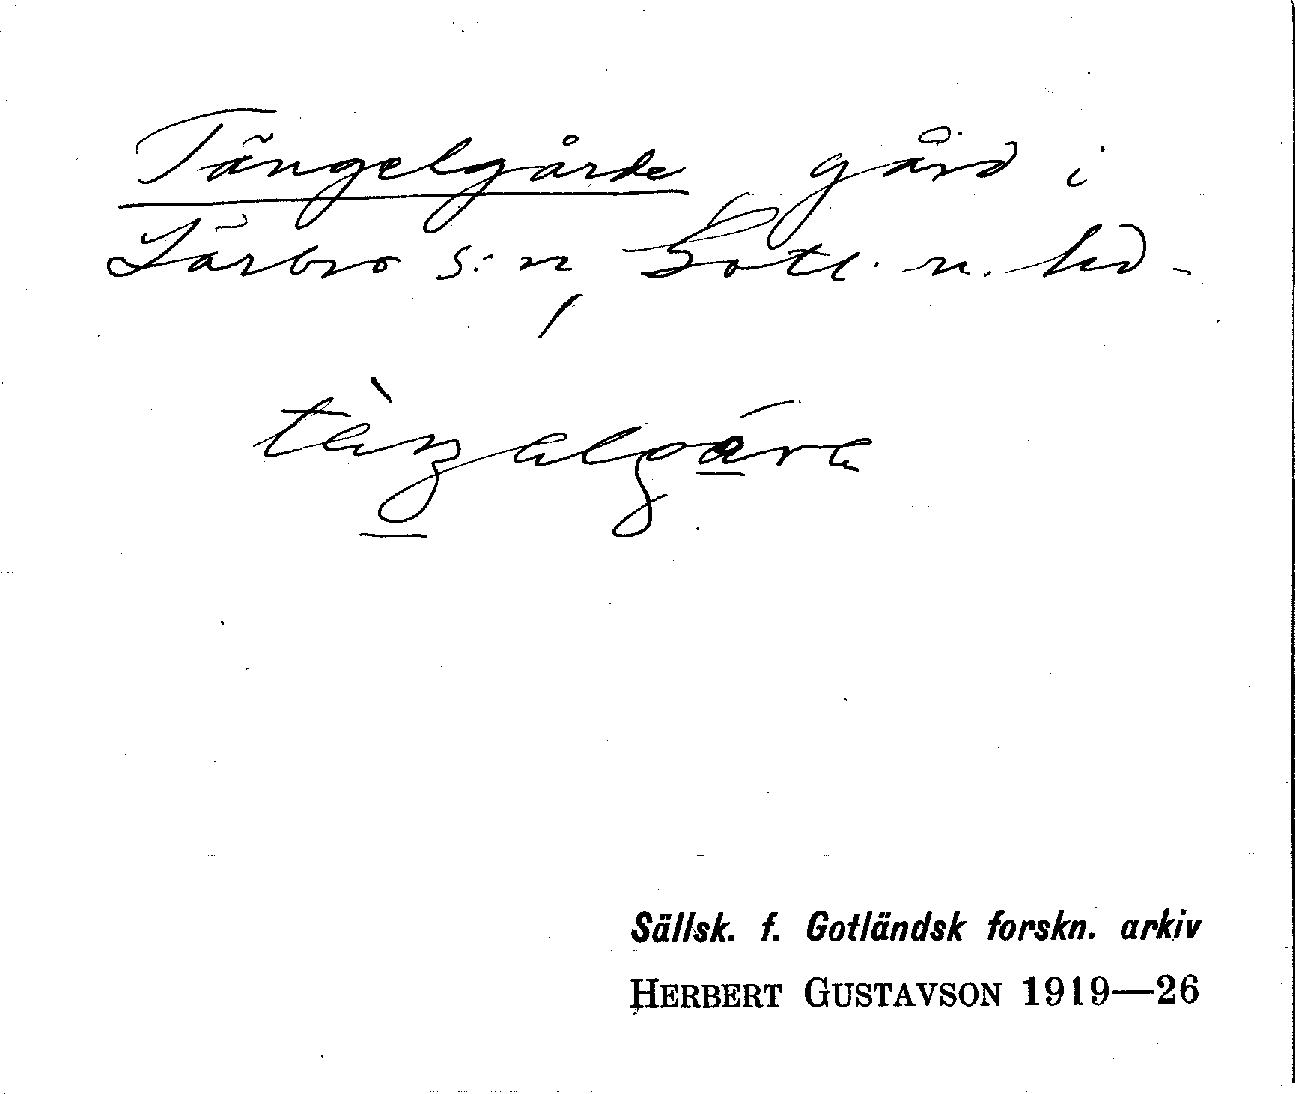 Tängelgårde gård i
Lärbro s:n, Gotl. n. hd.
Sällsk. f. Gotländsk forskn. arkiv
HERBERT GUSTAVSON 1919—26